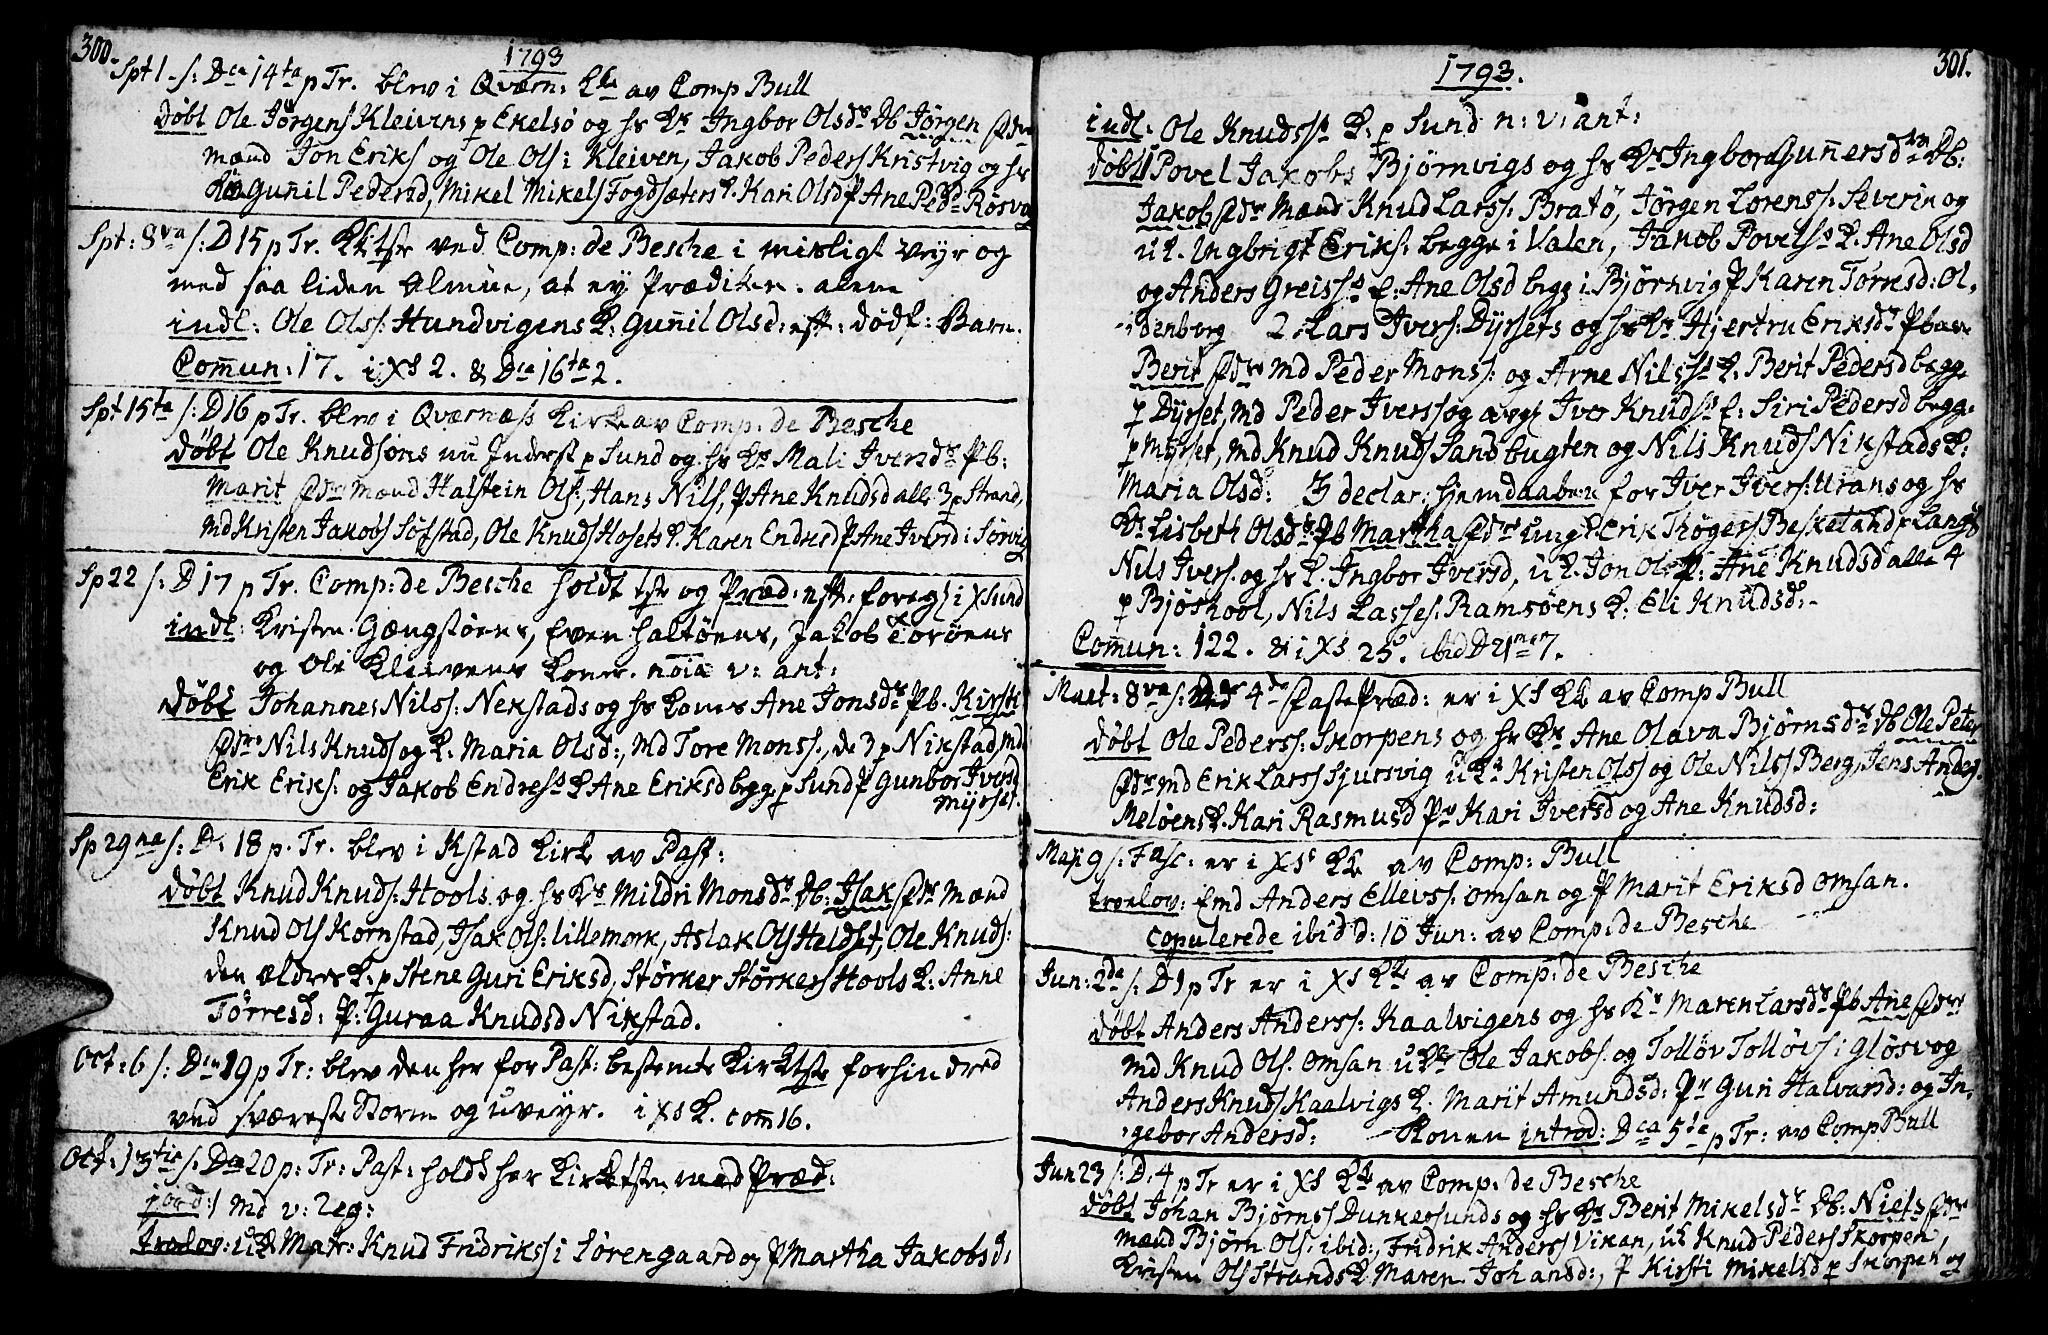 300.
1793
Spt 1 s: Dca 14ta p Tr. blev i Qværn: Kke av Comp Bull
døbt Ole Jørgens Kleivens p Ekelsø og hs Ks Ingbor Olsdr Db Jørgen fadr
mænd Jon Eriks og Ole Ols: Kleiven, Jakob Peders Kristvig og hs
K Gunil Pedersd, Mikel Mikels Fogdsæters K. Kari Olsd P Ane Pedd Rosvog
Spt: 8va s: D 15 p Tr. Kktste ved Comp: de Besche i misligt veyr og
med saa liden Almue, at ey Prædiken. alene
indl: Ole Ols: Hundvigens K: Gunnil Olsd: eft: dødf: Barn.
Commun: 17. i Xs 2. & Dca 16ta 2.
Spt 15ta s: D 16 p Tr. blev i Qværnæss Kirke av Comp: de Besche
døbt Ole Knudsøns nu Inderst p Sund og hs Ks Mali Iversdr Pb:
Marit fadr mænd Halstein Ols:, Hans Nils, P Ane Knudsd alle 3 p Strand,
md Kristen Jakobs Søfstad, Ole Knuds Hosets K. Karen Endresd P Ane Iversd i Sørvig
Sp 22 s: D 17 p Tr. Comp: de Besche holdt tste og Præd: eft: foregs i Xsund
indl: Kristen Gængstøens, Even Haltøens, Jakob Torøens
og Ole Kleivens Koner. noia v: ant:
døbt Johannes Nils: Nekstads og hs Kones Ane Jonsdr Pb. Kirsti
fadr Nils Knuds og K. Maria Olsd:, md Tore Mons:, de 3 p Nikstad, md
Erik Eriks: og Jakob Endress K Ane Eriksd begge p Sund P Gunbor Iversd
Myrset.
Sp 29na s: D. 18 p. Tr. blev i Kstad Kirke av Past:
døbt Knud Knuds: Hools og hs Ks Mildri Monsdr Db: Isak fadr mænd
Knud Ols Kornstad, Isak Ols: Lillemork, Aslak Ols Heldset, Ole Knuds:
den ældres K. p Stene Guri Eriksd, Størker Størkers Hools K: Anne
Tørresd: P: Guraa Knudsd Nikstad.
Oct: 6 s: Dca 19 p Tr: blev den her for Past: bestemte Kirktste forhindred
ved sværeste Storm og uveyr. i Xs K. com 16.
Oct: 13tie s: Dca 20 p: Tr: Past: holdt her Kirketste med Præd:
jord: 1 Md v: Reg:
trolov: uK Matr: Knud Fridriks i Sørengaard og P Martha Jakobsd:
301.
1793.
indl: Ole Knudss K: p Sund n: v: ant:
døbt 1 Povel Jakobs Bjørnvigs og hs Ks Ingbor Gunnersdtr Db:
Jakob fadr Mænd Knud Larss: Bratø, Jørgen Lorenss: Severin og
uK. Ingbrigt Eriks: begge i Valen, Jakob Povelss K. Ane Olsd
og Anders Greiss K: Ane Olsd begge i Bjørnvig P Karen Torresd: Ol-
denborg 2. Lars Ivers: Dyrsets og hs Ks Hjertru Eriksdr Pbarn
Berit fadr md Peder Mons: og Arne Nilss K. Berit Pedersd begge
p Dyrset, md Peder Ivers og Iver Knuds K: Siri Pedersd begge
p Myrset, md Knud Knuds Sandbugten og Nils Knuds Nikstads K:
Maria Olsd: 3 declar: hjemdaaben for Iver Ivers: Urans og hs
Ks Lisbett Olsdr Pb Martha fadr ungk Erik Thøgers Beskeland Langs
Nils Ivers: og hs K. Ingbor Iversd, uK. Jon Ols P: Ane Knudsd alle 4
p Bjøskool, Nils Lasses: Ramsøens K: Eli Knudsd:
Commun: 122. & i Xs 25. ibid D 21 7.
Mart: 8va s: ved 4de Fastepræd: er i Xs Kk av Comp Bull
døbt Ole Peders: Skorpens og hs Ks Ane Olava Bjørnsdr Db Ole Peter
fadr md Erik Larss Sjursvig uKr Kristen Ols og Ole Nils Berg, Jens Anders
Meløens K. Kari Rasmusd Pr Kari Iversd og Ane Knudsd:
Maji 9 s: F asc: er i Xs Kk av Comp: Bull
trolov: Emd Anders Ellevs: Omsan og P Marit Eriksd Omsan.
copulerede ibid d: 10 Jun: av Comp: de Besche
Jun: 2da s: D 1 p Tr er i Xs Kk av Comp: de Besche
døbt Anders Anders: Kaalvigens og hs Ks Maren Larsdr Pb Ane fadr
md Knud Ols. Omsan uKr Ole Jakobs: og Tolløv Tolløvs: i Gløsvog
Anders Knuds Kaalvigs K. Marit Amundsd: Pr Guri Halvarsd: og In-
gebor Andersd: Konen introd: Dca 5ta p Tr: av Comp Bull
Jun 23 s: D. 4 p Tr er i Xs Kk av Comp: de Besche
døbt Johan Bjørnss Dunkersunds og hs Ks Berit Mikelsdr Db: Niels fadr
mænd Bjørn Ols: ibid:, Fridrik Anders Vikan, uK Knud Peders Skorpen,
Kristen Ols Strands K Maren Johansd:, P Kirsti Mikelsd p Skorpen og